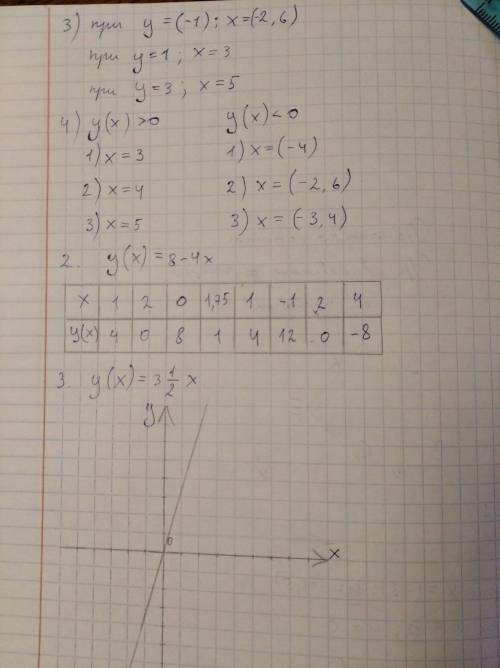 3) при y = (-1); x = (-2,6)
при y = 1; x = 3
при y = 3; x = 5
4) y(x) > 0 y(x) < 0
1) x = 3 1) x = (-4)
2) x = 4 2) x = (-2,6)
3) x = 5 3) x = (-3,4)
2. y(x) = 8 - 4x
x 1 2 0 1,75 1 -1 2 4
y(x) 4 0 8 1 4 12 0 -8
3. y(x) = 3 1/2 x
y
0
x